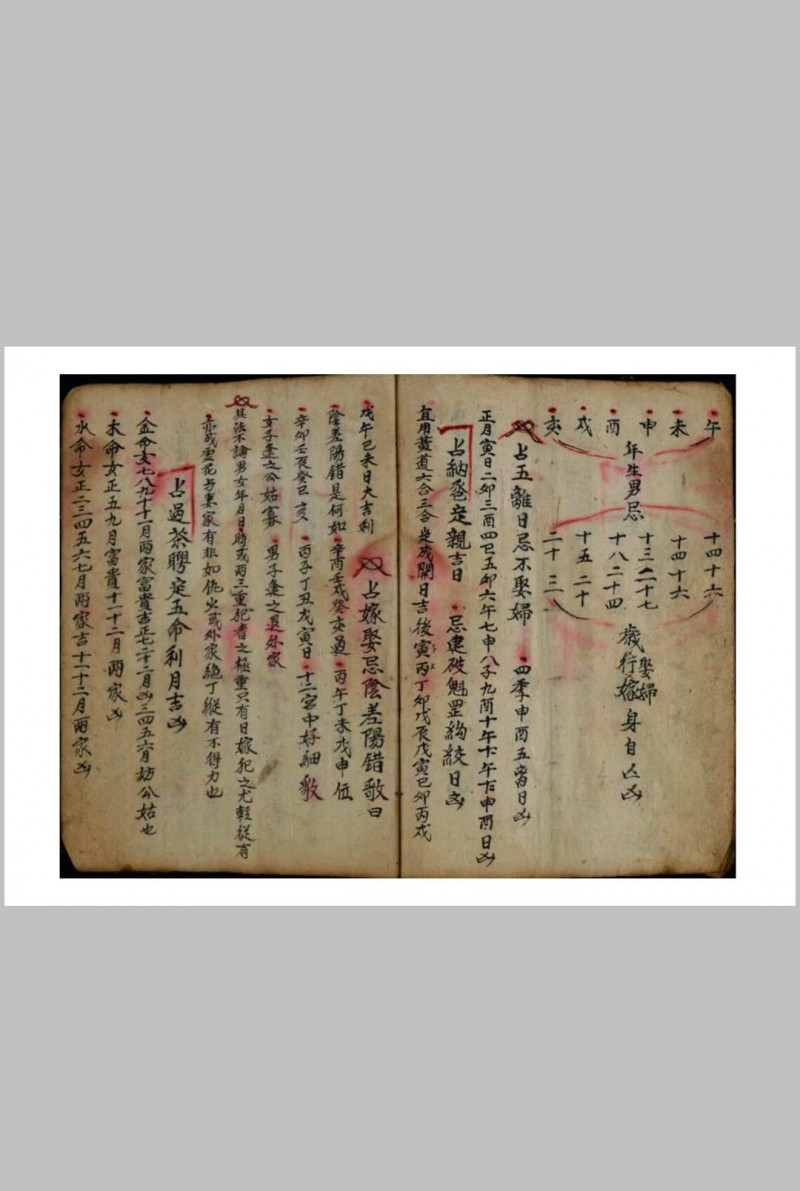 午 十四十六
未 十四十六
申 十三二十七
酉 年生男忌 十八二十四 歲行嫁娶婦身自亡凶
戌 十五二十
亥 二十三
占五離日忌不娶婦 四季申酉五离日凶
正月寅日二卯三酉四巳五卯六午七申八子九酉十年 午 申酉日凶
占納 定親吉日 忌建破魁罡夠絞日凶
宜用黃道六合三合定成開日吉後寅丙丁卯戊辰戊寅巳卯丙戌
戊午巳未日大吉利 占嫁娶忌陰差陽錯歌曰
陰差陽錯是何如 辛酉壬戌癸亥過 丙午丁未戊申位
辛卯壬辰癸巳 丙子丁丑戊寅日 十二宮中好細歌
女子逢之公姑寡 男子逢之退外家
其法不論男女年月日時或兩三重犯者之極重只有日嫁犯之尤輕縱有
亦或虛花与妻家有非如仇火或外家絕丁縱有不得力也
占過茶聘定五命利月吉凶
金命女七八九十十一月兩家富貴吉正七二十二月凶三四五六月妨公姑也
木命女正五九月富貴十一十二月兩家凶
水命女正二三四五六七月兩家吉十一十二月兩家凶